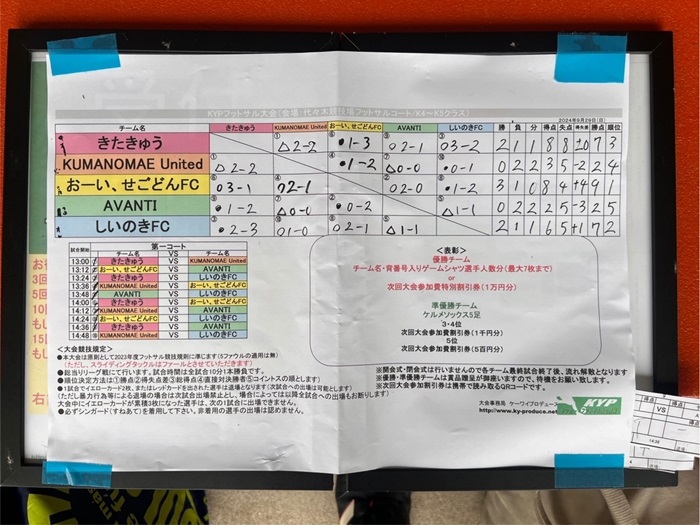 KYPフットサル大会(会場:代々木競技場フットサルコート/K4～K5クラス)
2024年9月29日(日)
チーム名 きたきゅう KUMANOMAE United おーい、せごどんFC AVANTI しいのきFC 勝 負 分 得点 失点 得失差 勝点 順位
きたきゅう ①△2-2 ⑥●1-3 ⑨○2-1 ③○3-2 2 1 1 8 8 ±0 7 3
KUMANOMAE United ①△2-2 ④●1-2 ⑦△0-0 ⑩●0-1 0 2 2 3 5 -2 2 4
おーい、せごどんFC ⑥○3-1 ④○2-1 ②○2-0 ⑧●1-2 3 1 0 8 4 +4 9 1
AVANTI ⑨●1-2 ⑦△0-0 ②●0-2 ⑤△1-1 0 2 2 2 5 -3 2 5
しいのきFC ③●2-3 ⑩○1-0 ⑧○2-1 ⑤△1-1 2 1 1 6 5 +1 7 2
試合開始 第一コート
チーム名 VS チーム名
13:00 きたきゅう VS KUMANOMAE United
13:12 おーい、せごどんFC VS AVANTI
13:24 きたきゅう VS しいのきFC
13:36 KUMANOMAE United VS おーい、せごどんFC
13:48 AVANTI VS しいのきFC
14:00 きたきゅう VS おーい、せごどんFC
14:12 KUMANOMAE United VS AVANTI
14:24 おーい、せごどんFC VS しいのきFC
14:36 きたきゅう VS AVANTI
14:48 KUMANOMAE United VS しいのきFC
＜表彰＞
優勝チーム
チーム名・背番号入りゲームシャツ選手人数分(最大7枚まで)
or
次回大会参加費特別割引券(1万円分)
準優勝チーム
ケルメソックス5足
3・4位
次回大会参加費割引券(1千円分)
5位
次回大会参加費割引券(5百円分)
＜大会競技規定＞
●本大会は原則として2023年度フットサル競技規則に準じます(5ファウルの適用は無)
(ただし、スライディングタックルはファールとさせていただきます)
●総当りリーグ戦にて行います。試合時間は全試合10分1本勝負です。
●順位決定方法は①勝点②得失点差③総得点④直接対決勝者⑤コイントスの順とします)
●1試合でイエローカード2枚、またはレッドカードを出された選手は退場となります(次の試合の出場は可能とします)
(ただし暴力行為等による退場の場合は次試合出場禁止とし、場合によっては以降全試合への出場もお断りします)
大会中にイエローカードが累積3枚になった選手は、次の1試合に出場できません。
●必ずシンガード(すねあて)を着用して下さい。非着用の選手の出場は認めません。
※開会式・閉会式は行いませんので各チーム最終試合終了後、流れ解散となります
※優勝・準優勝チームは賞品贈呈が御座いますので、待機をお願い致します。
※次回大会参加割引券は携帯で読みとるQRコードです。
大会事務局 ケーワイプロデュース
http://www.ky-produce.net
KYP
お
3回
5回
10回
もし
15回
もし
右
得点
VS
14:36